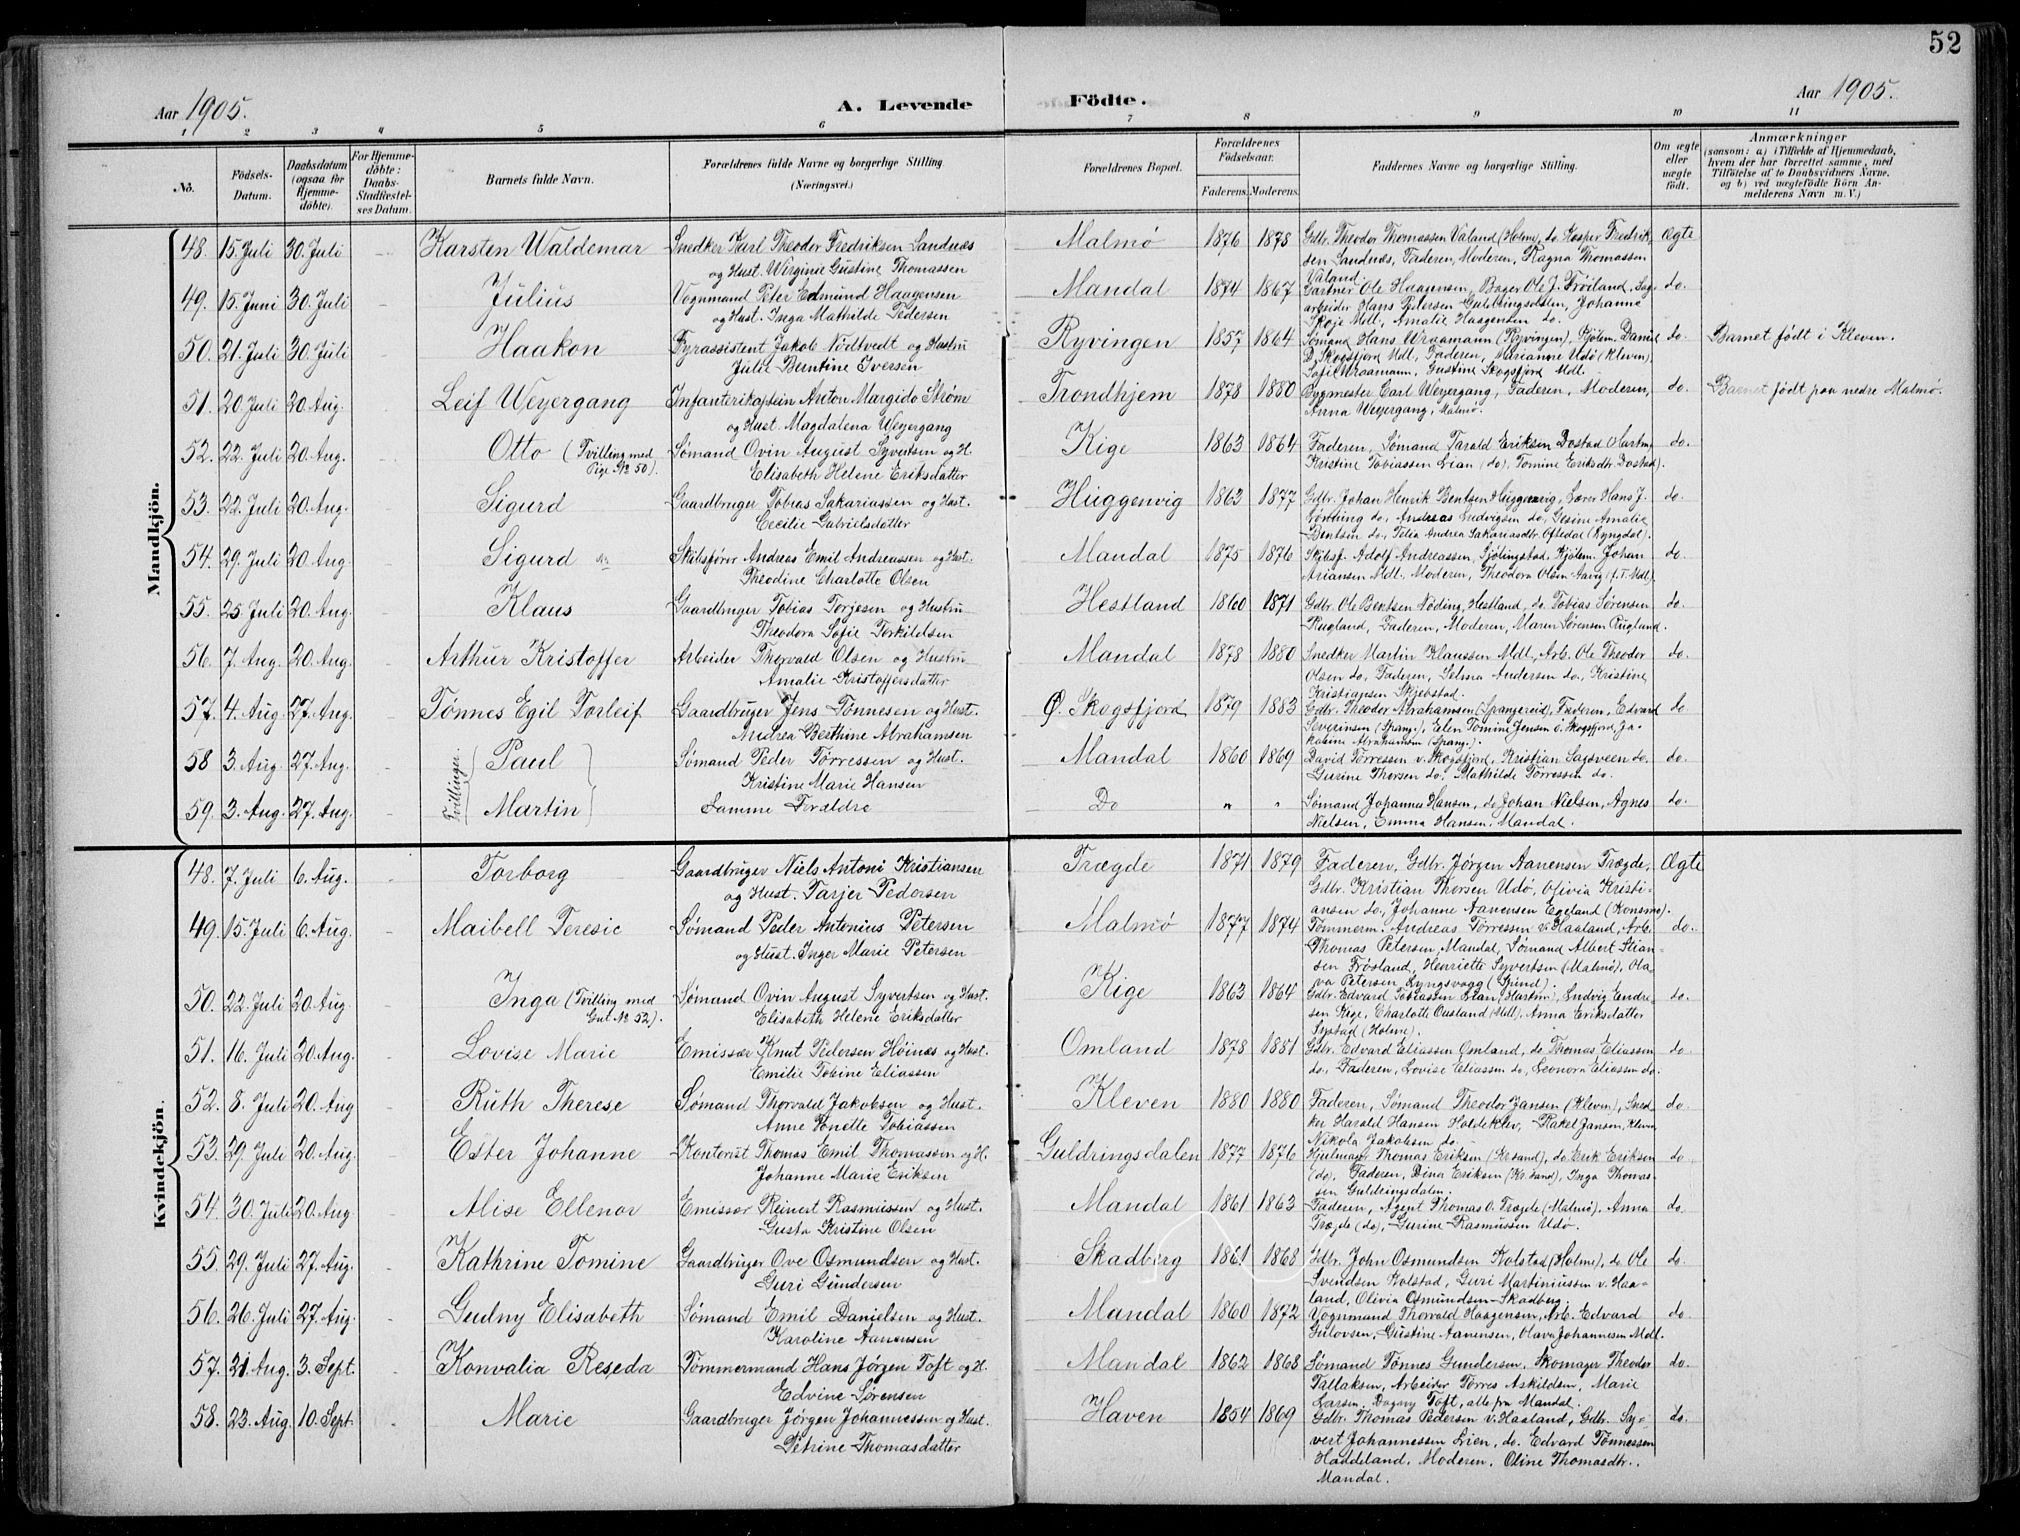 52
Aar 1905.
A. Levende Födte.
Aar 1905.
1 2 3 4 5 6 7 8 9 10 11
No.
Födsels-Datum.
Daabsdatum (ogsaa for Hjemme-döbte).
For Hjemme-döbte: Daabs-Stadfæstel-ses Datum.
Barnets fulde Navn.
Forældrenes fulde Navne og borgerlige Stilling.
(Næringsvei.)
Forældrenes Bopæl.
Forældrenes Födselsaar.
Faderens. Moderens.
Faddernes Navne og borgerlige Stilling.
Om ægte eller uægte födt.
Anmærkninger
(saasom: a) i Tilfælde af Hjemmedaab,
hvem der har forrettet samme, med
Tilföielse af to Daabsvidners Navne,
og b) ved uægtefödte Börn An-
melderens Navn m. V.)
Mandkjön.
48. 15. Juli 30. Juli Karsten Waldemar Snedker Karl Theodor Fredriksen Sandnæs Malmø 1876 1878 Gdbr. Theodor Thomassen Valand (Holme), do. Kasper Fredrik- Ægte
og Hust. Wirginie Gustine Thomassen sen Sandnæs, Faderen, Moderen, Ragna Thomassen
Valand.
49. 15. Juni 30. Juli Julius Vognmand Peter Edmund Haagensen Mandal 1874 1867 Gartner Ole Haagensen, Bager Ole J. Frøiland, Sag- do.
og Hust. Inga Mathilde Pedersen arbeider Hans Pedersen Guldringsdalen, Johanne
Skoje Mdl., Amalie Haagensen do.
50. 21. Juli 30. Juli Haakon Fyrassistent Jakob Nødtvedt og Hustru Ryvingen 1857 1864 Sømand Hans Uraamann (Ryvingen), Kjølem. Daniel do. Barnet født i Kleven.
Julie Bentine Iversen D. Skogsfjord Mdl., Faderen, Marianne Udø (Kleven),
Sofie Uraamann, Gustine Skogsfjord Mdl.
51. 20. Juli 20. Aug. Leif Weyergang Infanterikaptein Anton Margido Strøm Trondhjem 1878 1880 Bygmester Carl Weyergang, Faderen, Moderen, do. Barnet født paa nedre Malmø.
og Hust. Magdalena Weyergang Anna Weyergang, Malmø.
52. 22. Juli 20. Aug. Otto (Tvilling med Sømand Ovin August Syvertsen og H. Kige 1863 1864 Faderen, Sømand Tarald Eriksen Dostad (Hartm., do.
Pige No 50). Elisabeth Helene Eriksdatter Kristine Tobiassen Lian (do), Tomine Eriksdtr. Dostad).
53. 22. Juli 20. Aug. Sigurd Gaardbruger Tobias Sakariassen og Hust. Huggenvig 1863 1877 Gdbr. Johan Henrik Bentsen Huggenvig, Lærer Hans J. do.
Cecilie Gabrielsdatter Lønning do., Andreas Ludvigsen do, Gesine Amalie
Bentsen do, Telia Andrea Sakariasdtr Oftedal (Kyngdal).
54. 29. Juli 20. Aug. Sigurd Skibsfører Andreas Emil Andreassen og Hust. Mandal 1875 1876 Skibsf. Adolf Andreassen, Sjølingstad, Kjølem. Johan do.
Theodine Charlotte Olsen Ariansen Mdl. Moderen, Theodora Olsen Aavig (f. T. Mdl).
55. 25. Juli 20. Aug. Klaus Gaardbruger Tobias Torjesen og Hustru Hestland 1860 1871 Gdbr. Ole Bentsen Nøding, Hestland, do. Tobias Sørensen do.
Theodora Sofie Torkildsen Rugland, Faderen, Moderen, Maren Sørensen Rugland.
56. 7. Aug. 20. Aug. Arthur Kristoffer Arbeider Thorvald Olsen og Hustru Mandal 1878 1880 Snedker Martin Klaussen Mdl., Arb. Ole Theodor do.
Amalie Kristoffersdatter Olsen do, Faderen, Selma Andersen do, Kristine
Kristiansen Skjebstad.
57. 4. Aug. 27. Aug. Tønnes Egil Torleif Gaardbruger Jens Tønnesen og Hust. Ø. Skogsfjord 1879 1883 Gdbr. Theodor Abrahamsen (Spangereid), Faderen, Edvard do
Andrea Berthine Abrahamsen Severinsen (Spang), Elen Tomine Jensen ø. Skogsfjord, Ja-
kobine Abrahamsen (Spang.).
58 3. Aug. 27. Aug. Tvillinger. Paul Sømand Peder Tørressen og Hust. Mandal 1860 1869 David Tørressen v. Skogsfjord, Kristian Sagsveen do. do.
Kristine Marie Hansen Gurine Thorsen do. Mathilde Tørressen do.
59. 3. Aug. 27. Aug. Martin Samme Forældre Do " " Sømand Johannes Hansen, do Johan Nielsen, Agnes do.
Nielsen, Emma Hansen. Mandal.
Kvindekjön.
48. 7. Juli 6. Aug. Torborg Gaardbruger Niels Antoni Kristiansen Trægde 1871 1879 Faderen, Gdbr. Jørgen Aanensen Trægde, Ægte
og Hust. Tarjer Pedersen Gdbr. Kristian Thorsen Udø, Olivia Kristi-
ansen do., Johanne Aanensen Egeland (Konsmo).
49. 15. Juli 6. Aug. Maibell Teresie Sømand Peder Antonius Petersen Malmø 1877 1874 Tømmerm. Andreas Tørressen v. Haaland, Arb. do.
og Hust. Inger Marie Petersen Thomas Petersen, Mandal, Sømand Albert Stian-
sen Frøsland, Henriette Syvertsen (Malmø), Ola-
va Petersen Lyngsvaag (Grind).
50. 22. Juli 20. Aug. Inga (Tvilling med Sømand Ovin August Syvertsen og Hust. Kige 1863 1864 Gdbr. Edvard Tobiassen Lian (Hartm), Ludvig Endre- do.
Gut No 52). Elisabeth Helene Eriksdatter sen Kige, Charlotte Ousland (Mdl), Anna Eriksdatter
(Holme).
51. 16. Juli 20. Aug. Lovise Marie Emissær Knut Pedersen Høinæs og Hust. Omland 1878 1881 Gdbr. Edvard Eliassen Omland, do. Thomas Eliassen do.
Emilie Tobine Eliassen do., Faderen, Lovise Eliassen do, Leonora Eliassen do.
52. 8. Juli 20. Aug Ruth Therese Sømand Thorvald Jakobsen og Hust. Kleven 1880 1880 Faderen, Sømand Theodor Jansen (Kleven), Sned- do.
Anne Tonette Tobiassen ker Harald Hansen Holdeklev, Rakel Jansen, Kleven,
Nikola Jakobsen do.
53. 29. Juli 20. Aug. Ester Johanne Kontorist Thomas Emil Thomassen og H. Guldringsdalen 1877 1876 Hjulmager Thomas Eriksen (Kr.sand), do Erik Eriksen do
Johanne Marie Eriksen (do), Faderen, Dina Eriksen (Kr.sand), Inga Thomas-
sen Guldringsdalen.
54. 30. Juli 20. Aug Alise Ellenor Emissær Reinert Rasmussen og Hust. Mandal 1861 1863 Faderen, Agent Thomas O. Trægde (Malmø), Anna do.
Gusta Kristine Olsen Trægde (do), Gurine Rasmussen Udø.
55. 29. Juli 27. Aug. Kathrine Tomine Gaardbruger Ove Osmundsen og Hust. Skadberg 1861 1868 Gdbr. John Osmundsen Kolstad (Holme), do. Ole do.
Guri Gundersen Svendsen Kolstad, Guri Martiniussen v. Haa-
land, Olivia Osmundsen Skadberg.
56. 26. Juli 27. Aug. Gudny Elisabeth Sømand Emil Danielsen og Hust. Mandal 1860 1872 Vognmand Thorvald Haagensen, Arb. Edvard do
Karoline Aanensen Gulovsen, Gustine Aanensen, Olava Johannesen Mdl.
57. 21. Aug. 3. Sept. Konvalia Reseda Tømmermand Hans Jørgen Toft og H. Mandal 1862 1868 Sømand Tønnes Gundersen, Skomager Theodor do.
Edvine Sørensen Tallaksen, Arbeider Tørres Askildsen, Marie
Larsen, Dagny Toft, alle fra Mandal.
58. 23. Aug. 10. Sept. Marie Gaardbruger Jørgen Johannessen og Hust. Haven 1854 1869 Gdbr. Thomas Pedersen v. Haaland, Gdbr. Sy- do.
Petrine Thomasdatter vert Johannessen Lien, do. Edvard Tønnessen
Haddeland, Moderen, Oline Thomasdtr.
Mandal.